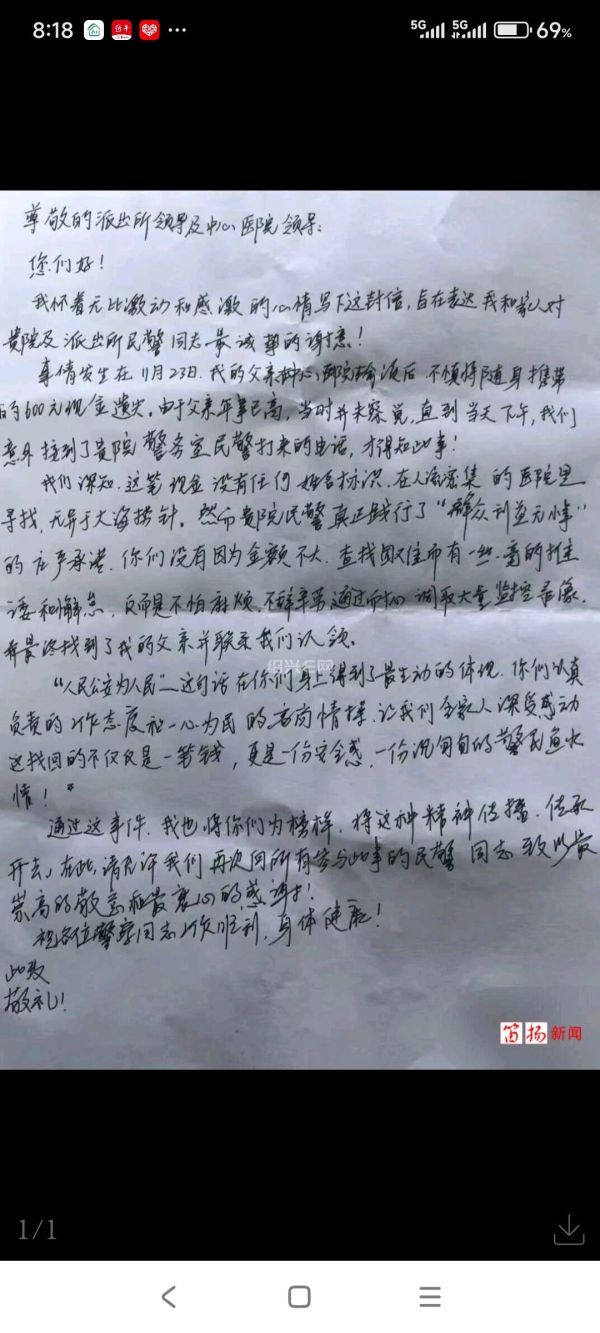 8:18
5G 5G 69%
尊敬的派出所领导及中心医院领导:
您们好!
我怀着无比激动和感激的心情写下这封信,旨在表达我和家人对
贵院及派出所民警同志最诚挚的谢意!
事情发生在11月23日.我的父亲在中心医院输液后不慎将随身携带
的600元现金遗失.由于父亲年事已高,当时并未察觉,直到当天下午,我们
意外接到了贵院警务室民警打来的电话,才得知此事!
我们深知.这笔现金没有任何姓名标识.在人流密集的医院里
寻找.无异于大海捞针.然而贵院民警真正践行了“群众利益无小事”
的庄严承诺.你们没有因为金额不大.查找困难而有一丝一毫的推
诿和懈怠.反而是不怕麻烦.不辞辛劳通过 调取大量监控录像.
并最终找到了我的父亲并联系我们认领.
“人民公安为人民”这句话在你们身上得到了最生动的体现.你们认真
负责的工作态度和一心为民的高尚情操.让我们全家人深受感动
这找回的不仅仅是一笔钱,更是一份安全感.一份沉甸甸的警民鱼水
情!”
通过这事件.我也将你们为榜样.将这种精神传播.传承
开去,在此,请允许我们再次向所有参与此事的民警同志致以最
崇高的敬意和最衷心的感谢!
祝各位警察同志工作顺利,身体健康!
此致
敬礼!
绍兴E网
笛扬新闻
1/1